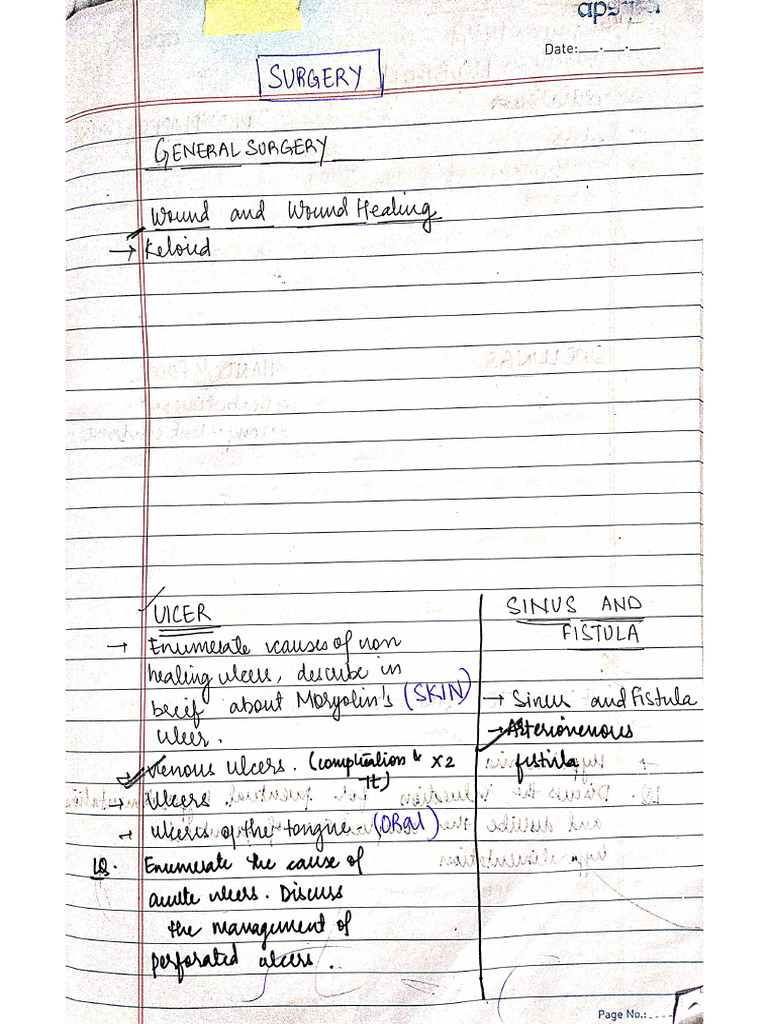 Date:__.__.__
SURGERY
GENERAL SURGERY
Wound and Wound Healing
→ Keloid
ULCER
→ Enumerate causes of non
healing ulcers, describe in
brief about Morjolin's (SKIN)
ulcer.
→ Venous ulcers. (complication & x2
It)
→ Ulcers
→ ulcers of the tongue (ORal)
LQ. Enumerate the cause of
acute ulcers. Discuss
the management of
perforated ulcers.
SINUS AND
FISTULA
→ Sinus and Fistula
→ Arteriovenous
fistula
Page No.: